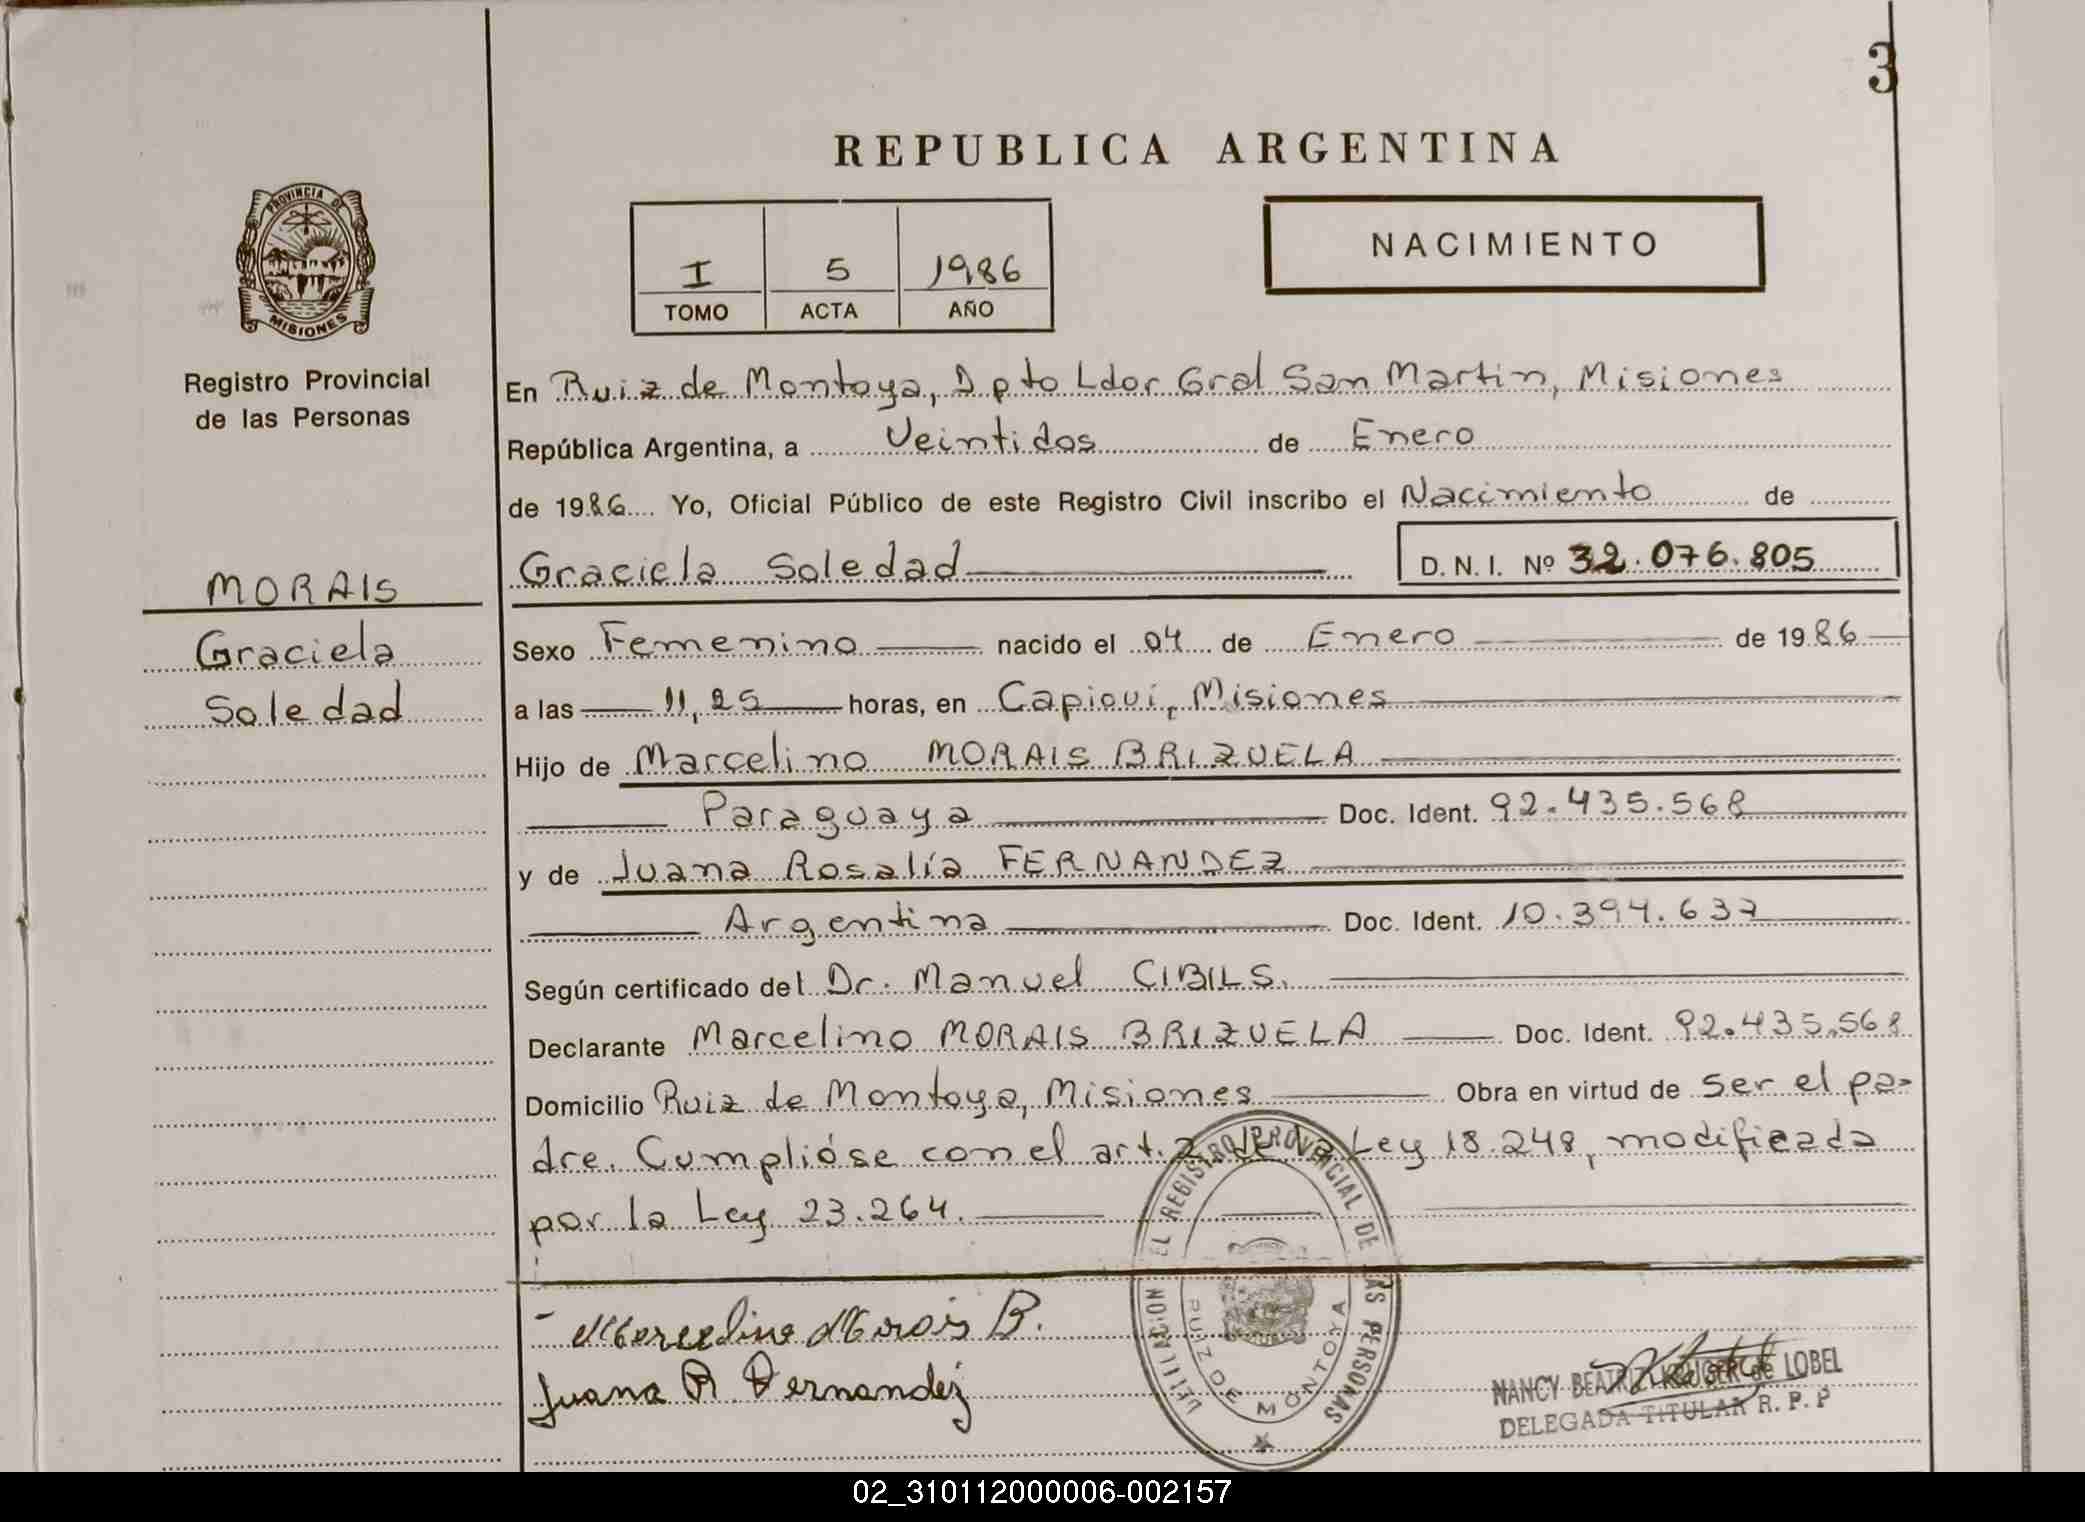 3
REPUBLICA ARGENTINA
PROVINCIA DE
MISIONES
I 5 1986
TOMO ACTA AÑO
NACIMIENTO
Registro Provincial
de las Personas
MORAIS
Graciela
Soledad
En Ruiz de Montoya, Dpto Ldor Gral San Martin, Misiones
República Argentina, a Veintidos de Enero
de 1986 Yo, Oficial Público de este Registro Civil inscribo el Nacimiento de
Graciela Soledad D. N. I. Nº 32.076.805
Sexo Femenino nacido el 04 de Enero de 1986
a las 11,25 horas, en Capioví, Misiones
Hijo de Marcelino MORAIS BRIZUELA
Paraguaya Doc. Ident. 92.435.568
y de Juana Rosalía FERNANDEZ
Argentina Doc. Ident. 10.394.637
Según certificado del Dr. Manuel CIBILS.
Declarante Marcelino MORAIS BRIZUELA Doc. Ident. 92.435.568
Domicilio Ruiz de Montoya, Misiones Obra en virtud de ser el pa-
dre. Cumplióse con el art. 2 de la Ley 18.248, modificada
por la Ley 23.264.
Marcelino Morais B.
Juana R. Fernandez
DEL REGISTRO PROVINCIAL DE LAS PERSONAS
RUIZ DE MONTOYA
NANCY BEATRIZ KRUGER de LOBEL
DELEGADA TITULAR R. P. P
02_310112000006-002157